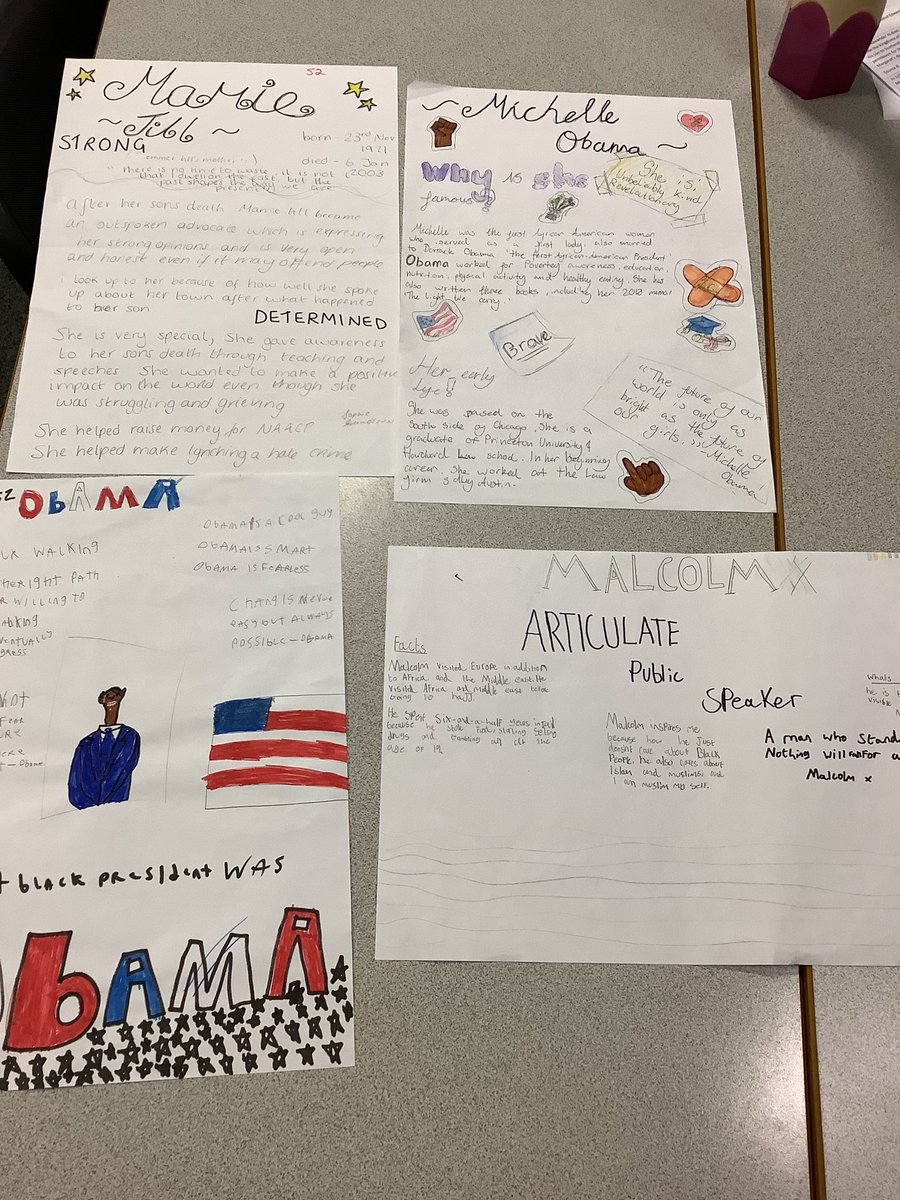 52
Mamie
~ Till ~
STRONG
born - 23rd Nov
1921
died - 6 Jan
2003
(emmet till's mother)
"there is no time to waste, it is not
that I dwell on the past, but the
past shapes the way we are
present"
after her sons death Mamie till became
an outspoken advocate which is expressing
her strong opinions and is very open
and honest even if it may offend people
i look up to her because of how well she spoke
up about her town after what happened
to her son
DETERMINED
She is very special, She gave awareness
to her sons death through teaching and
speeches She wanted to make a positive
impact on the world even though she
was struggling and grieving
She helped raise money for NAACP
She helped make lynching a hate crime
~ Michelle
Obama ~
Why is she
famous?
She is:
Unbelievably kind
Revolutionary
Michelle was the first African-American woman
who served as a first lady, also married
to Barrack Obama 'the first African-American President'
Obama worked for Poverty awareness, education,
nutrition, physical activity and healthy eating. She has
also written three books, including her 2018 memoir
'The light we carry.'
Brave
Her early
life!
She was raised on the
South side of Chicago, She is a
graduate of Princeton University &
Harvard Law school. In her beginning
career, She worked at the Law
firm sidley Austin.
"The future of our
world is only as
bright as the future of
our girls."
-Michelle
Obama
52 ObAMA
WALKING
THE RIGHT PATH
WILLING TO
EVENTUALLY
OBAMA IS A COOL GUY
OBAMA IS SMART
OBAMA IS FEARLESS
CHANG IS NEVER
EASY BUT ALWAYS
POSSIBLE - OBAMA
- Obama
black president WAS
ObAMA
MALCOLM X
ARTICULATE
Public
Speaker
Facts
Malcolm visited Europe in addition
to Africa and the Middle east. He
visited Africa and middle east before
going to hajj.
He spent six-and-a-half years in jail
because he stole food, starting selling
drugs and gambling all at the
age of 19.
Malcolm inspires me
because how he just
doesn't care about Black
People, he also cares about
Islam and muslims and
I am muslim my self.
he is
A man who stand
Nothing will for a
Malcolm x